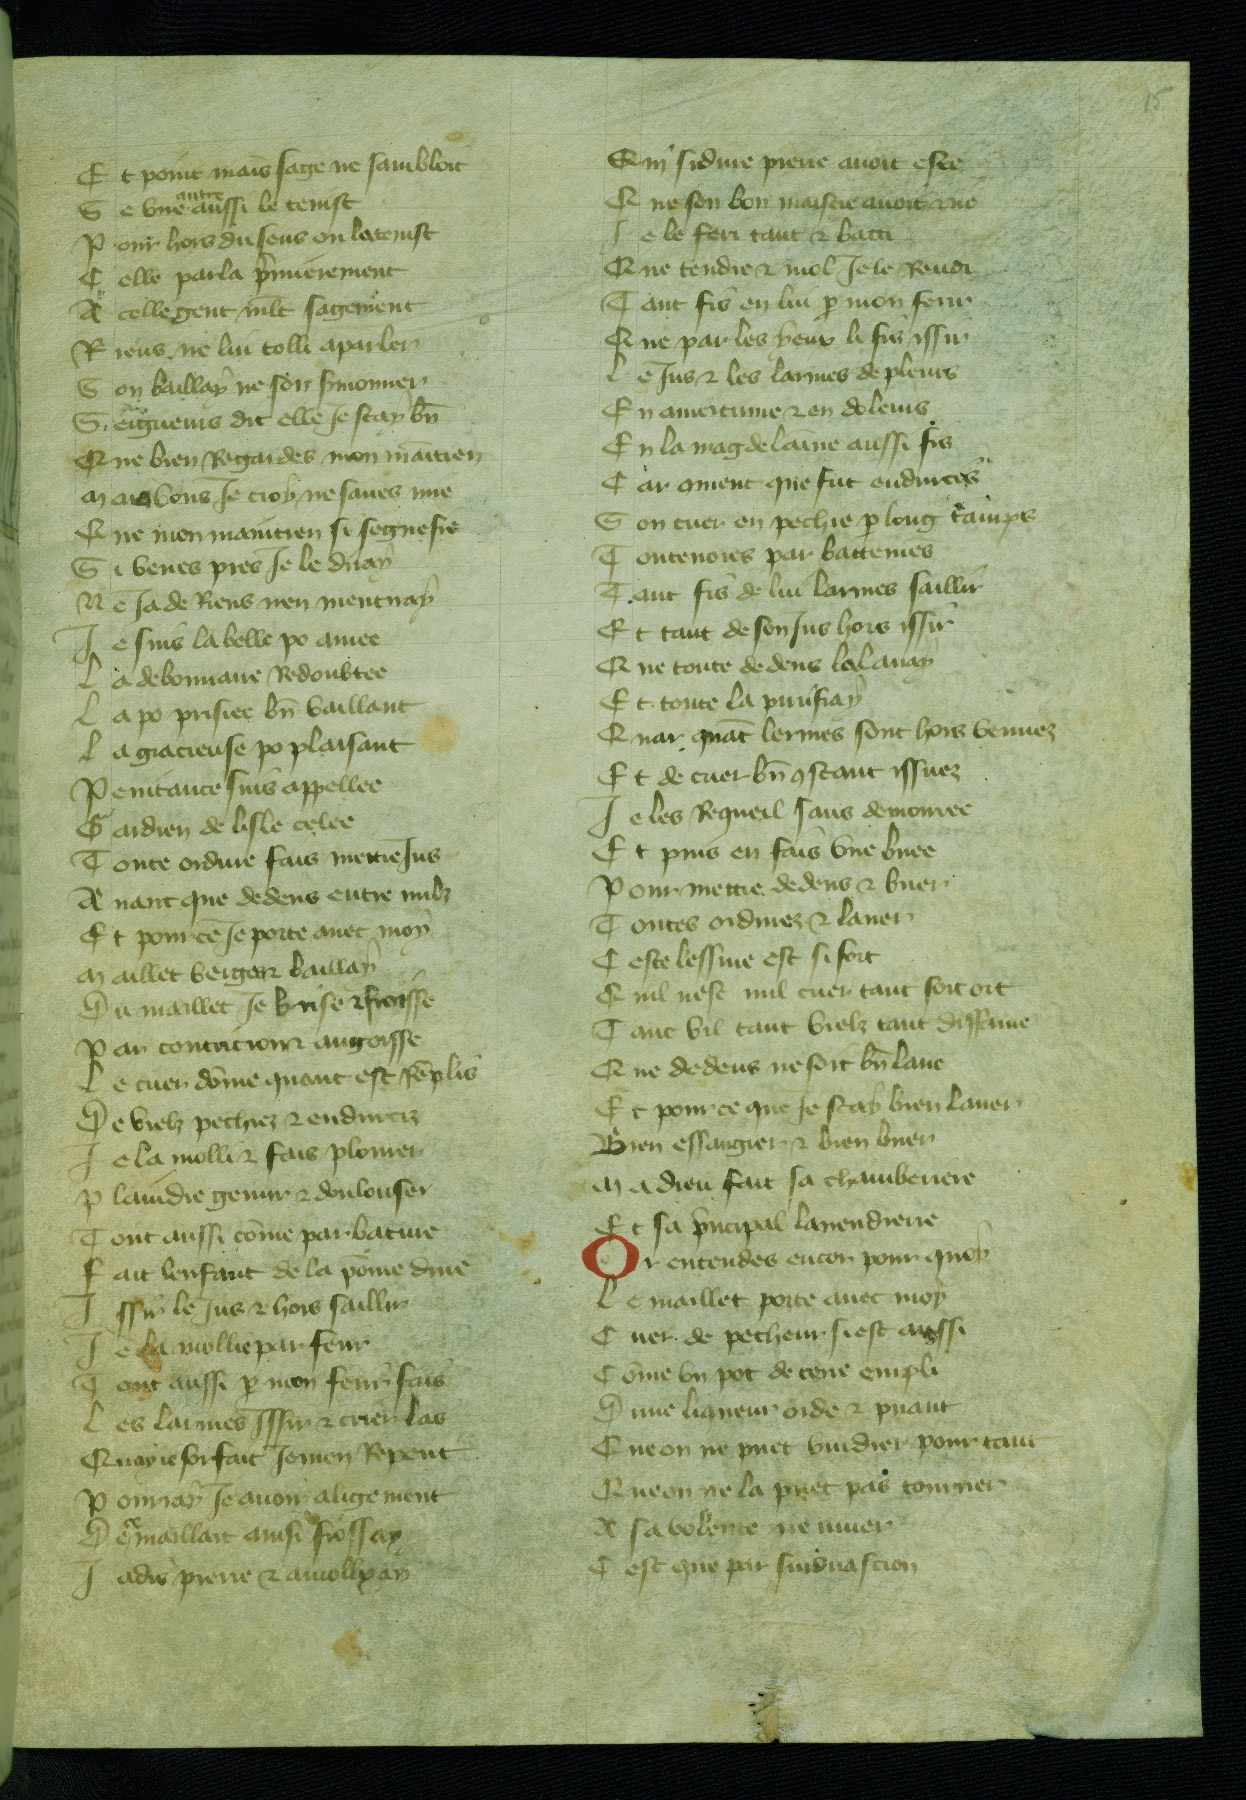 15
Et point mains sage ne sambloit
Se vne autre aussi le tenist
Pour hors du sens on le tenist
Celle parla p̃mierement
A celle gent mlt sagement
Riens ne lui tolli a parler
Son baillay ne son
Seigneurs dit elle Je scay bñ
Que bien Regardes mon maĩtien
Mais vous Je croy ne saues mie
Que mon maintien se segnefie
Si venes pres Je le diray
Ne Ja de Riens nen mentiray
Je suis la belle po amee
La debonnaire Redoubtee
La po prisiee bñ vaillant
La gracieuse po plaisant
Penitance suis appellee
Gardien de lisle celee
Toute ordure fais mettre Jus
Auant que dedens entre nulz
Et pour ce Je porte auec moy
Maillet verges & baillay
Du maillet Je brise & froisse
Par contricion & angoisse
Le cuer dõme quant est Rẽplis
De vielz pechiez & endurcis
Je la molli & fais plourer
Plaindre gemir & doulouser
Tout aussi cõme par bature
Fait lenfant de la põme dure
Issir le Jus & hors saillir
Je la mollie par ferir
Tout aussi p mon ferir fais
Les larmes Issir & crier las
Quay ie forfait Je men Repent
Pourray Je auoir aligement
De maillait ainsi froissay
Jadis pierre & amolliay
Qui si dure pierre auoit este
Que son bon maistre auoit nie
Je le feri tant & batti
Que tendre & mol Je le Rendi
Tant fis en lui p mon ferir
Que par les yeux li fis issir
Le Jus & les larmes de pleurs
En amertume & en doleurs
En la magdelaine aussi fis
Car 9ment que fut endurcis
Son cuer en pechie p long tamps
Toutenoies par battemens
Tant fis de lui larmes saillir
Et tant de son Jus hors issir
Que toute dedens le lauay
Et toute la purifiay
Quar quãt lermes sont hors venuez
Et de cuer bñ 9stant issuez
Je les Requeil sans demouree
Et puis en fais vne buee
Pour mettre dedens & buer
Toutes ordurez & lauer
Ceste lessiue est si fort
Quil nest nul cuer tant soit ort
Tant vil tant vielz tant diffame
Que dedens ne soit bñ laue
Et pour ce que Je scay bien lauer
Bien essaugier & bien buer
Ma dieu fait sa chamberiere
Et sa p̃ncipal lauendriere
Or entendes encor pour quoy
Le maillet porte auec moy
Cuer de pecheur si est aussi
Cõme vn pot de terre empli
Dune liqueur orde & puant
Que on ne puet vuidier pour tant
Que on ne la puet pas tourner
A sa volente ne muer
Cest que par